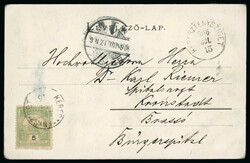 LEVELEZŐ-LAP.
Hochwohlgeboren Herrn
Dr Karl Riemer
Spitalsarzt
Kronstadt
Brassó
Bürgerspital
5